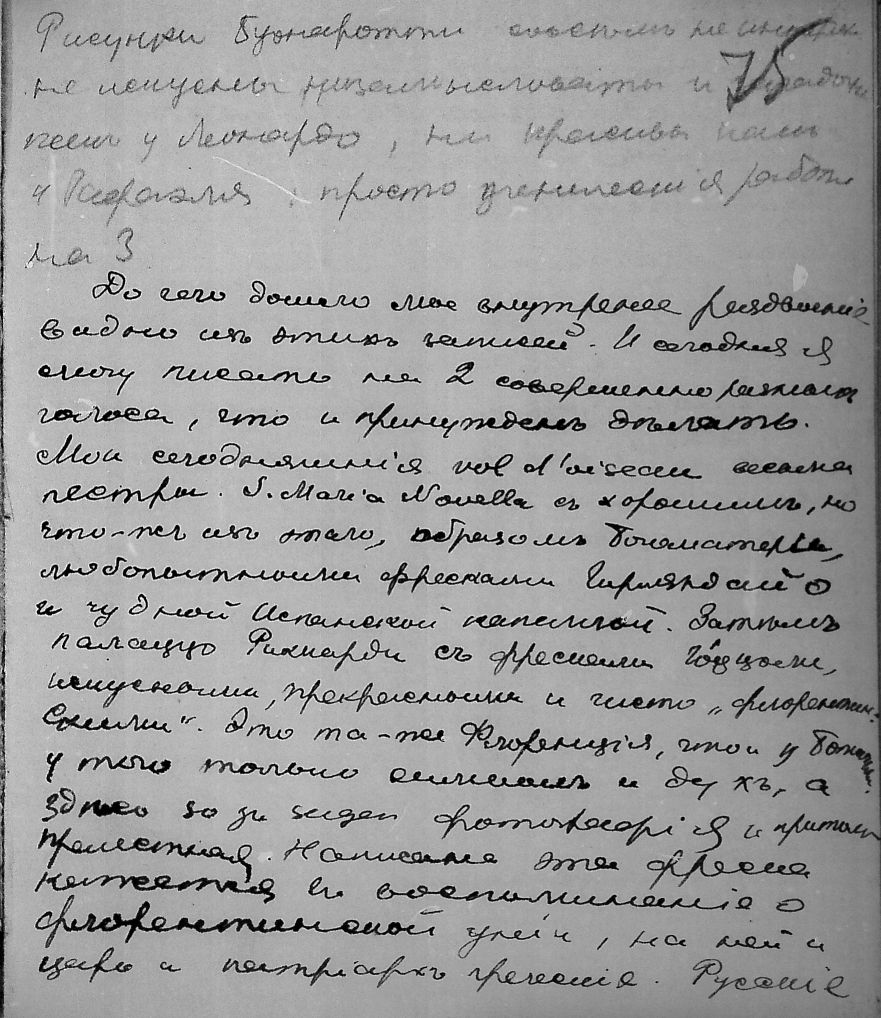 Рисунки Буонаротти совсѣмъ не
75
не искусны, ни замысловаты и
какъ у Леонардо, ни красивы какъ
у Рафаэля, просто ученическія работы
на 3
До чего дошло мое внутренее раздвоеніе
видно изъ этихъ записей. И сегодня я
могу писать на 2 совершенно разныхъ
голоса, что и принужденъ дѣлать.
Мои сегодняшнія vol d'oiseau весьма
пестры. S. Maria Novella съ хорошимъ, но
что-жъ изъ этого, образомъ Богоматери,
любопытными фресками Гирляндайо
и чудной Испанской капеллой. Затѣмъ
палаццо Риккарди съ фресками Гоццоли,
искусными, прекрасными и чисто „флорентин-
скими". Это та-же Флоренція, что и у
у того только символъ и духъ, а
здѣсь so zu sagen фотографія и притомъ
прелестная. Написана эта фреска
кажется въ воспоминаніе о
флорентинской уніи, на ней и
царь и патріархъ греческіе. Русскіе